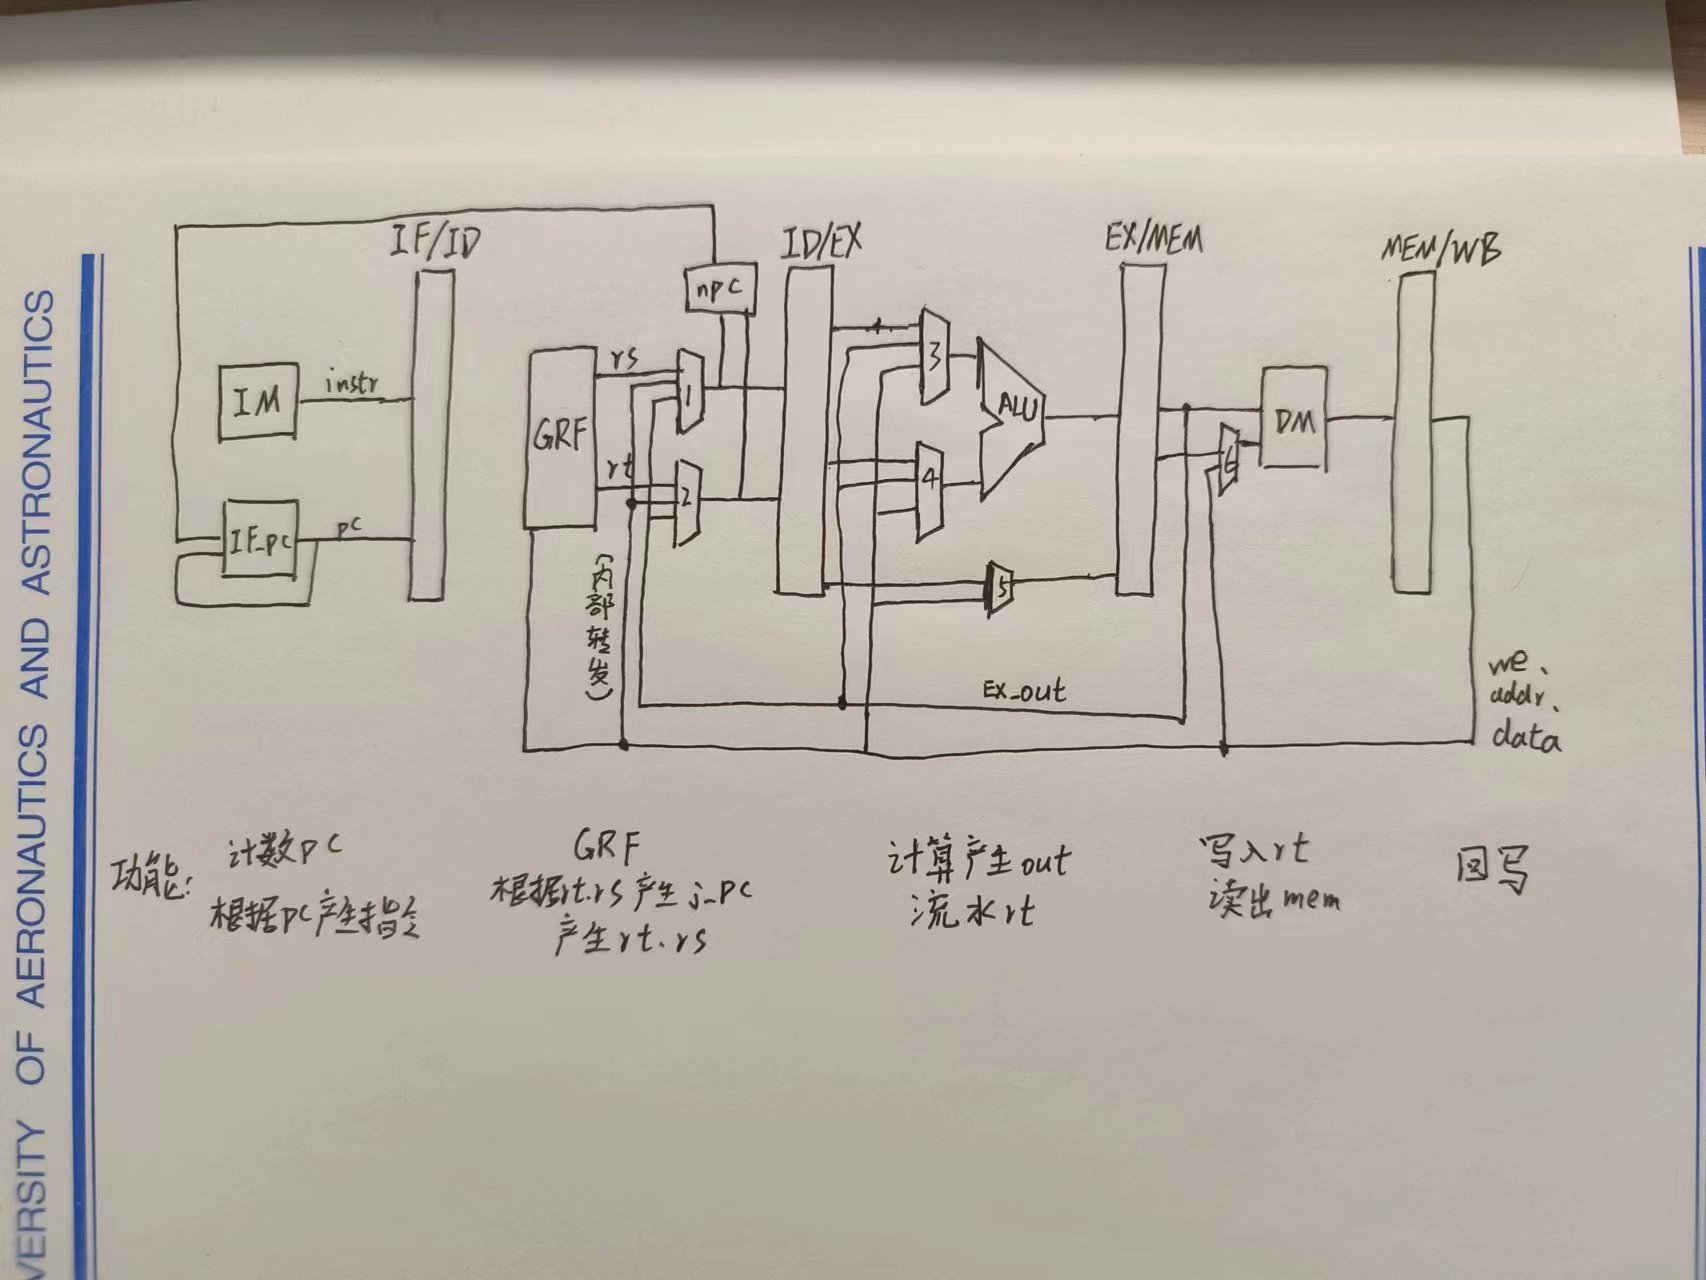 VERSITY OF AERONAUTICS AND ASTRONAUTICS
IF/ID
ID/EX
EX/MEM
MEM/WB
npc
IM
instr
IF_pc
pc
GRF
rs
rt
1
2
3
4
5
6
ALU
DM
(内部转发)
EX_out
we、
addr、
data
功能:
计数pc
根据pc产生指令
GRF
根据rt.rs产生j_pc
产生rt.rs
计算产生out
流水rt
写入rt
读出mem
回写